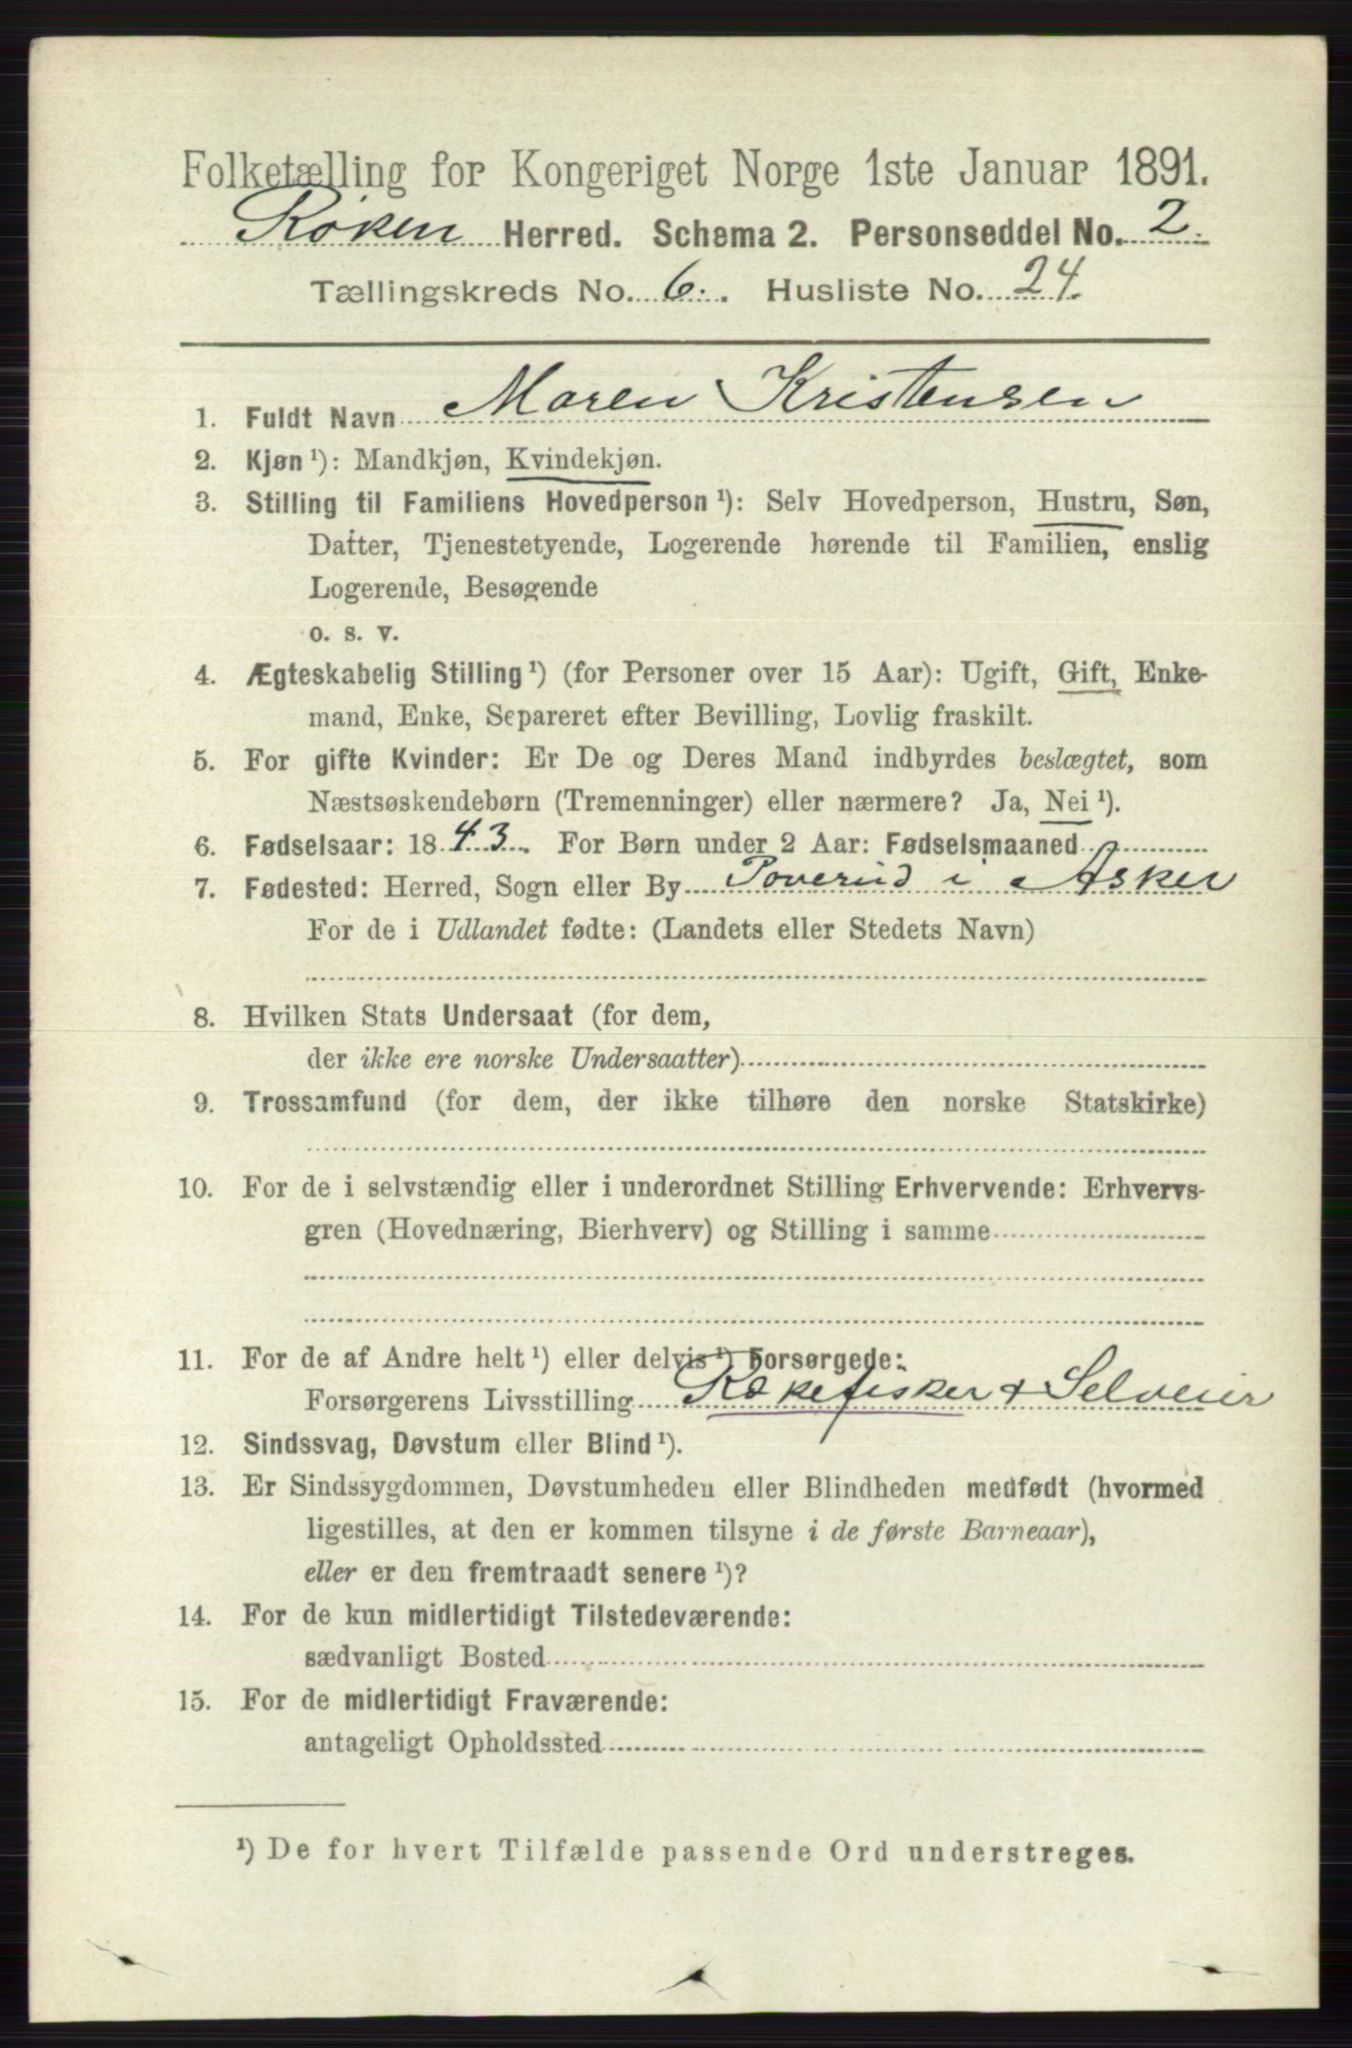 Folketælling for Kongeriget Norge 1ste Januar 1891.
Røken Herred. Schema 2. Personseddel No. 2.
Tællingskreds No. 6. Husliste No. 24.
1. Fuldt Navn Maren Kristensen
2. Kjøn ¹): Mandkjøn, Kvindekjøn.
3. Stilling til Familiens Hovedperson ¹): Selv Hovedperson, Hustru, Søn,
Datter, Tjenestetyende, Logerende hørende til Familien, enslig
Logerende, Besøgende
o. s. v.
4. Ægteskabelig Stilling ¹) (for Personer over 15 Aar): Ugift, Gift, Enke-
mand, Enke, Separeret efter Bevilling, Lovlig fraskilt.
5. For gifte Kvinder: Er De og Deres Mand indbyrdes beslægtet, som
Næstsøskendebørn (Tremenninger) eller nærmere? Ja, Nei ¹).
6. Fødselsaar: 1843. For Børn under 2 Aar: Fødselsmaaned
7. Fødested: Herred, Sogn eller By Poverud i Asker
For de i Udlandet fødte: (Landets eller Stedets Navn)
8. Hvilken Stats Undersaat (for dem,
der ikke ere norske Undersaatter)
9. Trossamfund (for dem, der ikke tilhøre den norske Statskirke)
10. For de i selvstændig eller i underordnet Stilling Erhvervende: Erhvervs-
gren (Hovednæring, Bierhverv) og Stilling i samme
11. For de af Andre helt ¹) eller delvis ¹) Forsørgede:
Forsørgerens Livsstilling Rækefisker & Selveier
12. Sindssvag, Døvstum eller Blind ¹).
13. Er Sindssygdommen, Døvstumheden eller Blindheden medfødt (hvormed
ligestilles, at den er kommen tilsyne i de første Barneaar),
eller er den fremtraadt senere ¹)?
14. For de kun midlertidigt Tilstedeværende:
sædvanligt Bosted
15. For de midlertidigt Fraværende:
antageligt Opholdssted
¹) De for hvert Tilfælde passende Ord understreges.